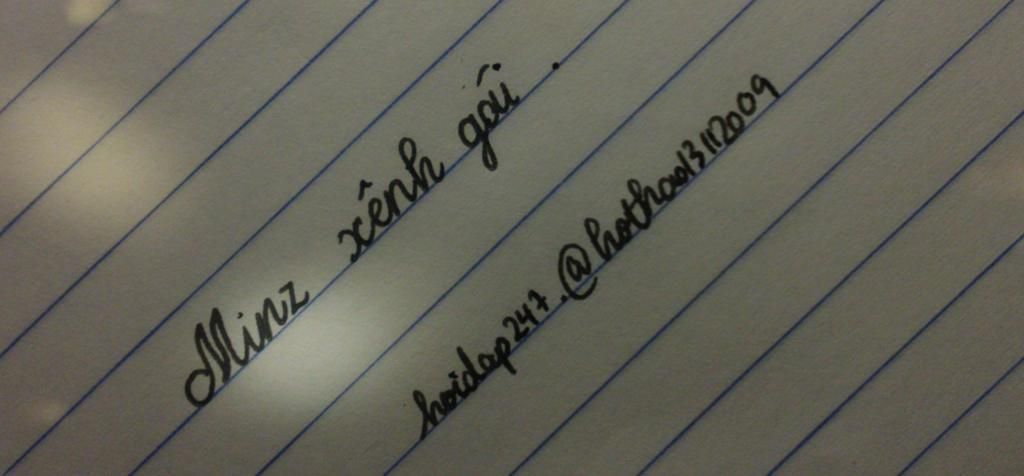 Minz xênh gối .
hoidap247.@hothao13112009